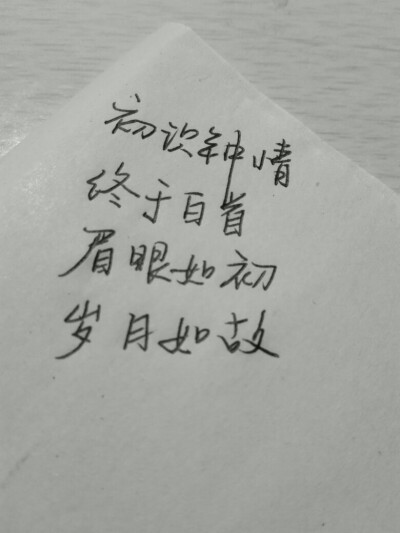 初识钟情
终于百首
眉眼如初
岁月如故